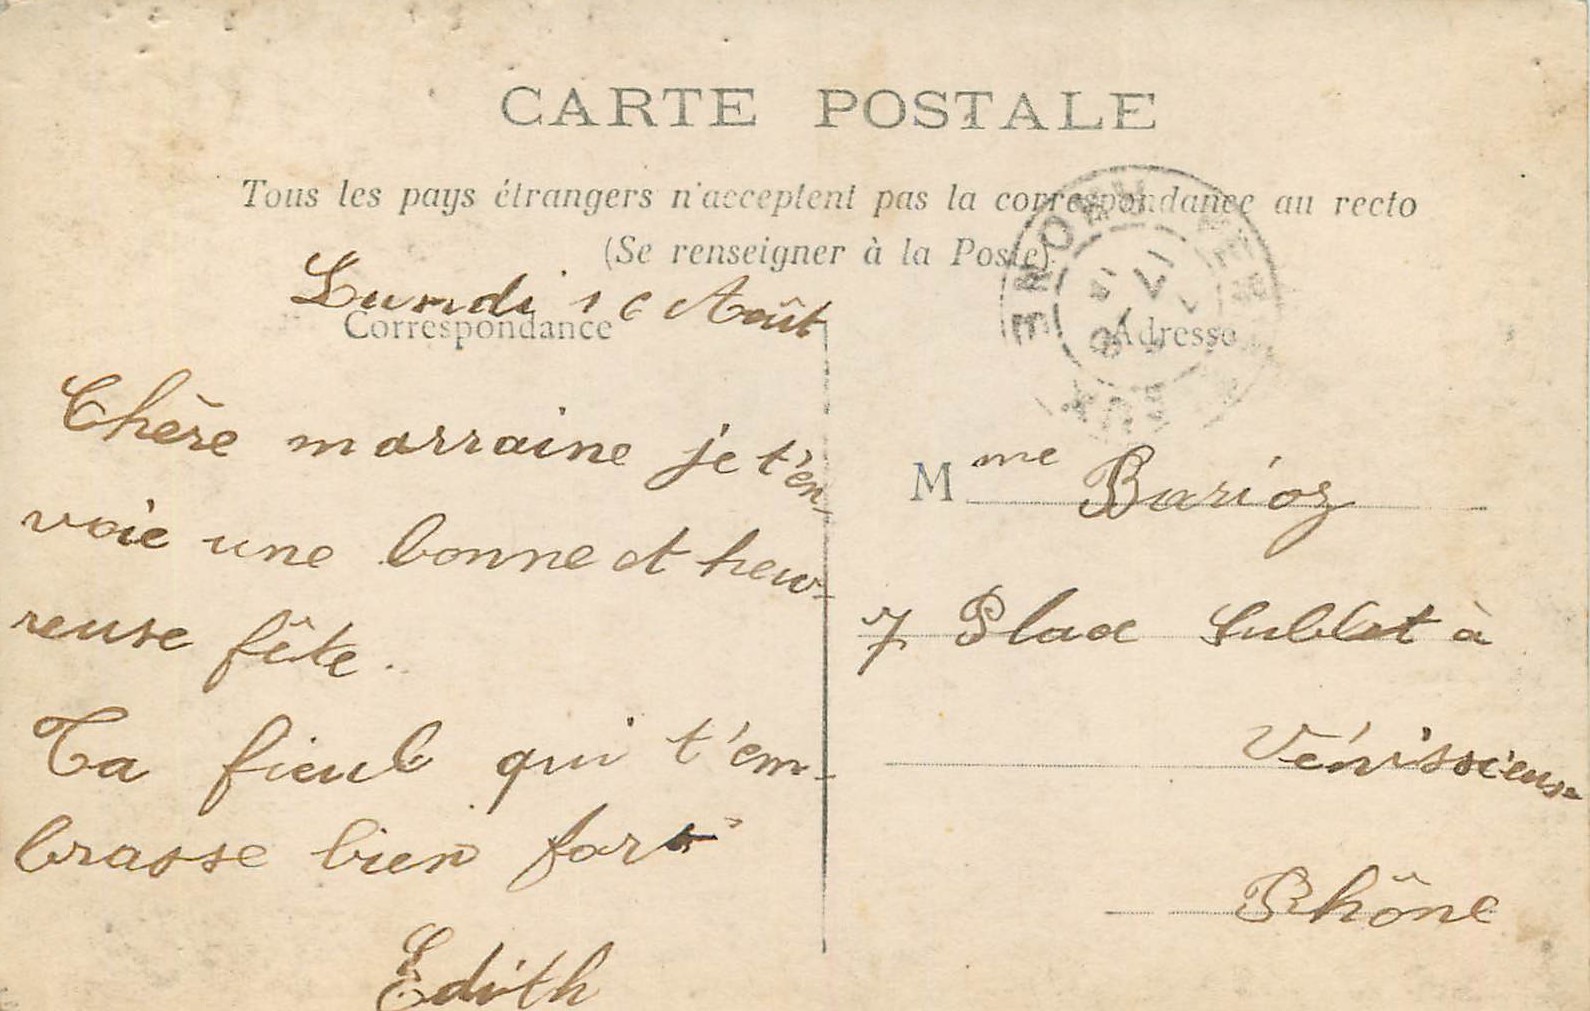 CARTE POSTALE
Tous les pays étrangers n'acceptent pas la correspondance au recto
(Se renseigner à la Poste)
Lundi 16 Août
Correspondance
Chère marraine je t'en-
voie une bonne et heu-
reuse fête.
Ta fieul qui t'em-
brasse bien fort
Edith
Adresse
Mme Barioz
7 Place Sublet à
Vénissieux
Rhône
RHONE
17